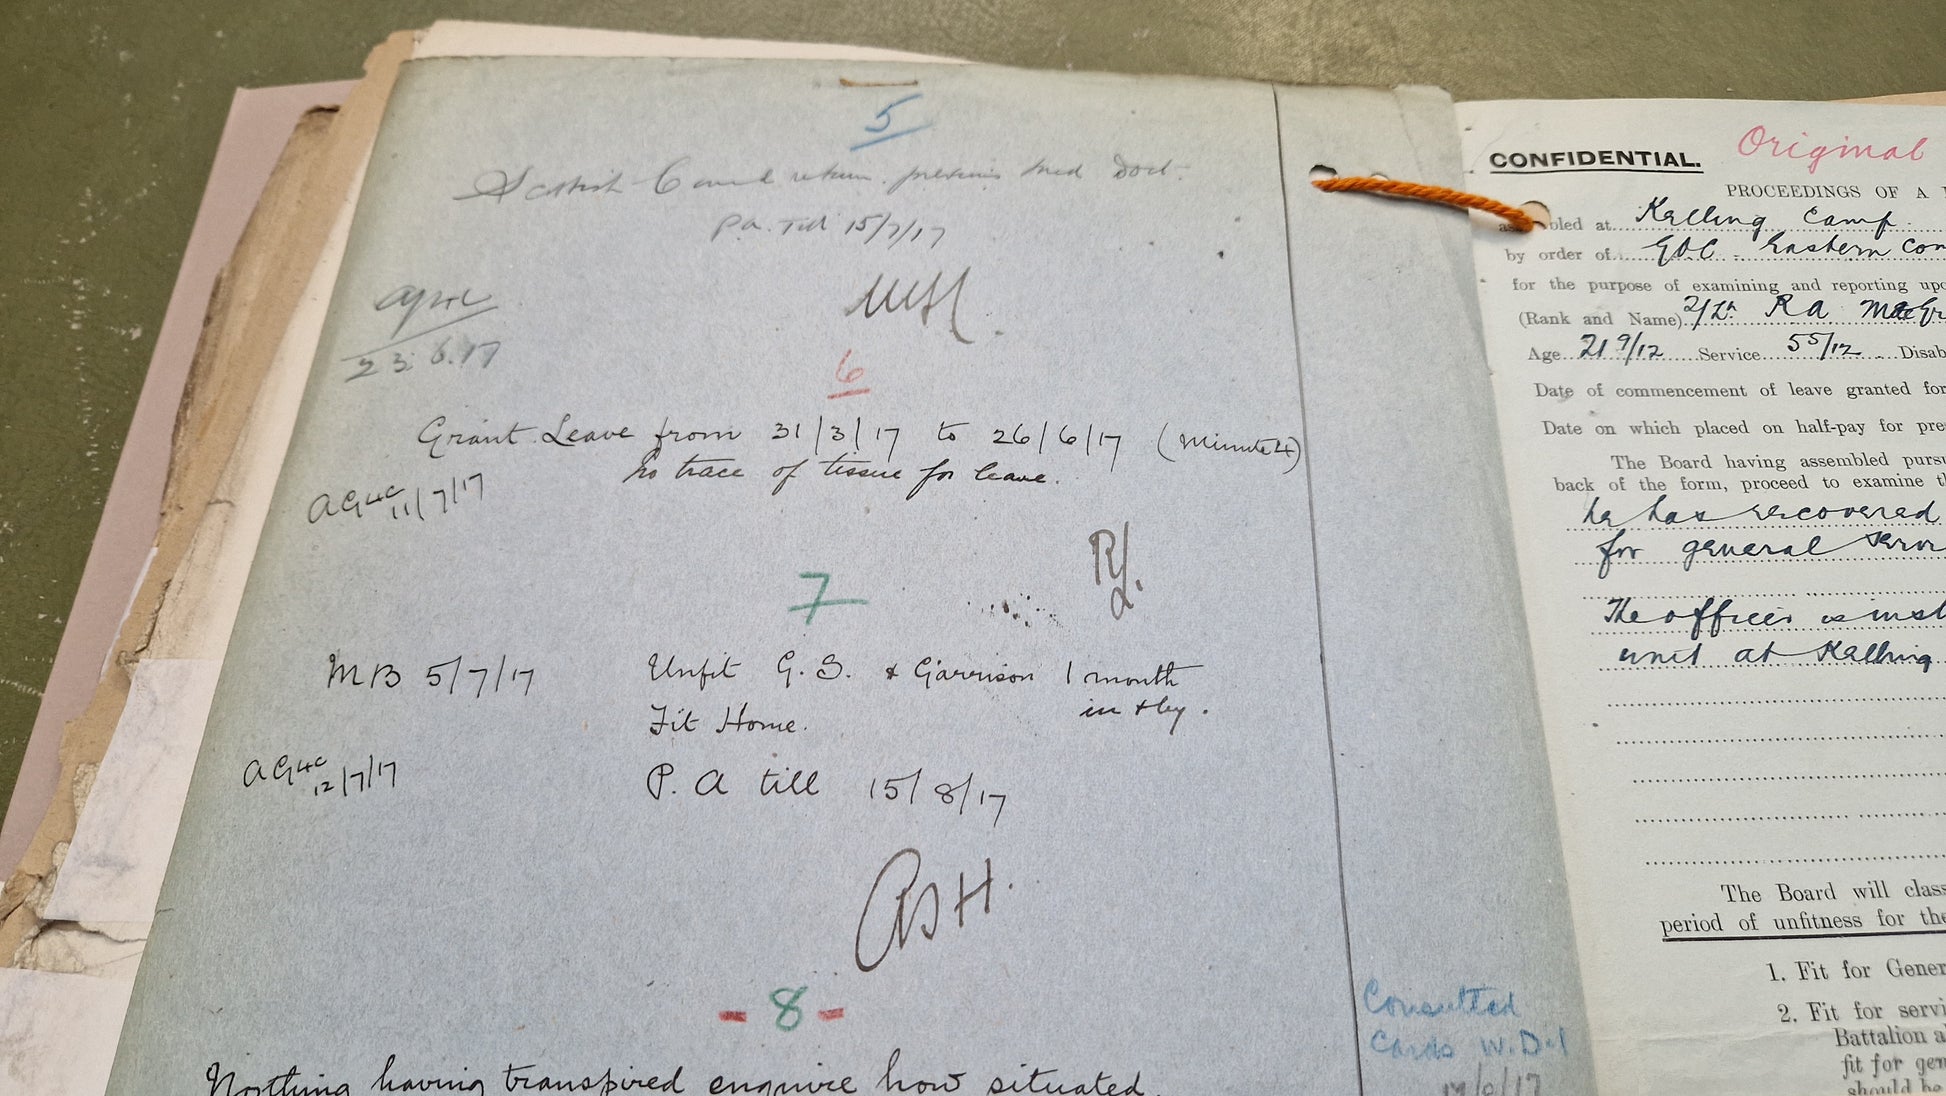 5
Scottish Comd return previous med Doct.
P.A. till 15/7/17
23.6.17
6
Grant Leave from 31/3/17 to 26/6/17 (Minute 4)
No trace of tissue for leave.
AG4c 11/7/17
7
MB 5/7/17 Unfit G.S. & Garrison 1 month
Fit Home. in + by.
AG4c 12/7/17 P. A till 15/8/17
ASH.
- 8 -
Nothing having transpired enquire how situated.
Consulted
Cards W.D.1
CONFIDENTIAL. Original
PROCEEDINGS OF A
bled at Kelling Camp.
by order of G.O.C - Eastern Com
for the purpose of examining and reporting upo
(Rank and Name) 2/Lt. R A MacGr
Age 21 9/12 Service 5 5/12 Disab
Date of commencement of leave granted for
Date on which placed on half-pay for pre
The Board having assembled pursu
back of the form, proceed to examine t
he has recovered
for general serv
The officer is inst
unit at Kelling
The Board will class
period of unfitness for the
1. Fit for Gener
2. Fit for servi
Battalion a
fit for gen
should be